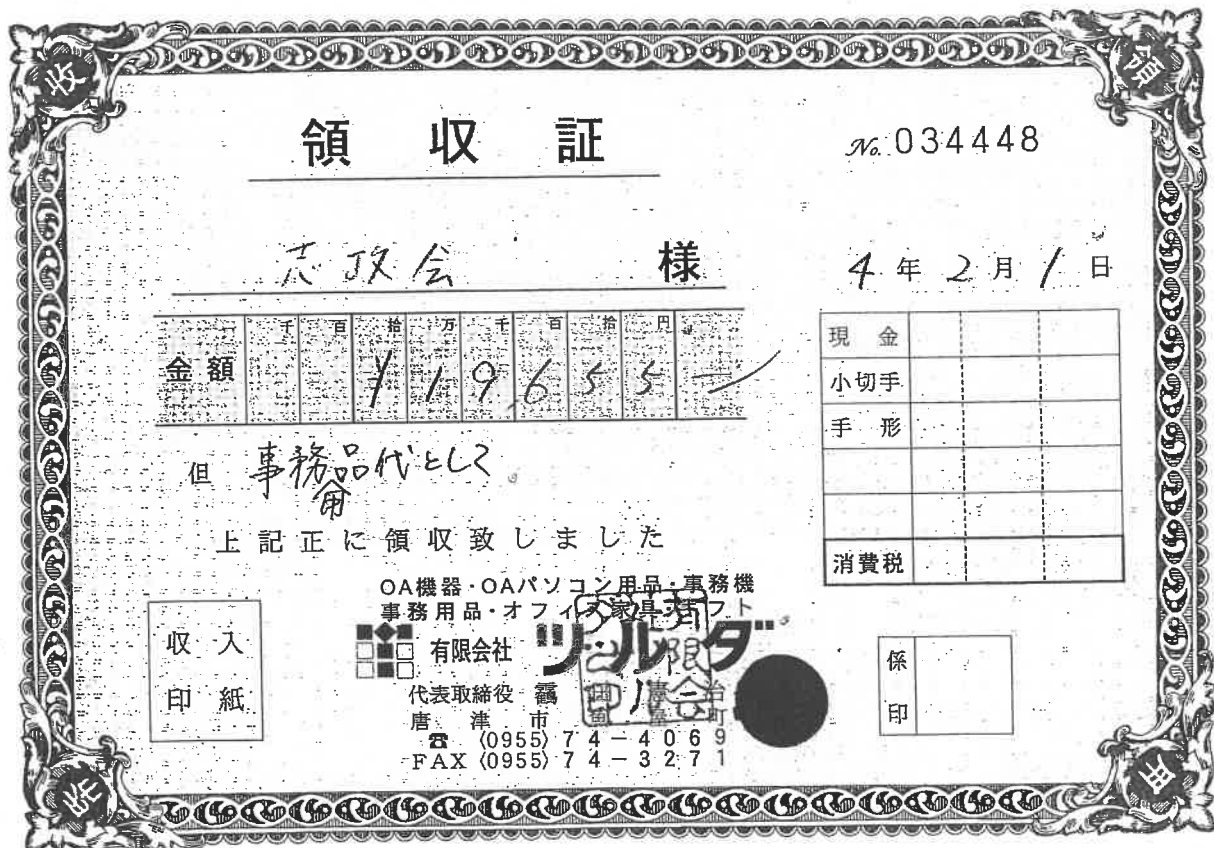 領 収 証
No. 034448
志政会 様
4 年 2 月 1 日
金額 千 百 拾 万 千 百 拾 円
¥19,655-
但 事務用品代として
上記正に領収致しました
現 金
小切手
手 形
消費税
収 入
印 紙
OA機器・OAパソコン用品・事務機
事務用品・オフィス家具・ギフト
有限会社 ツルダ
代表取締役
唐 津 市
☎ (0955) 74-4069
FAX (0955) 74-3271
係
印